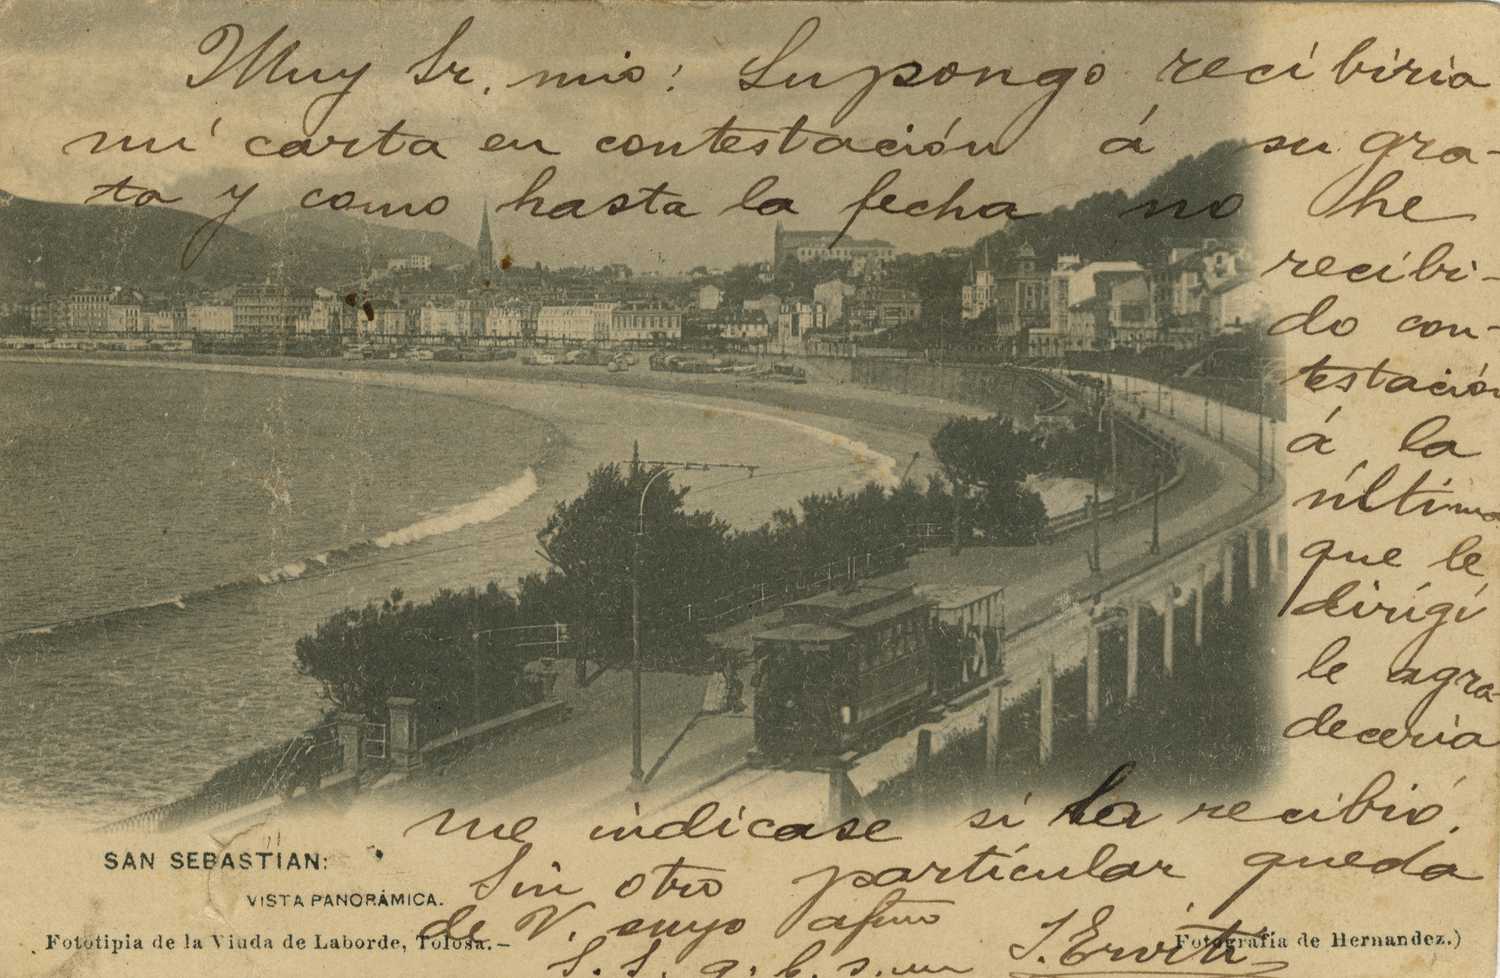 Muy Sr. mio: Supongo recibiria
mi carta en contestación á su gra-
ta y como hasta la fecha no he
recibi-
do con-
testación
á la
última
que le
dirigí
le agra-
deceria
me indicase si la recibió.
Sin otro particular queda
de V. suyo afmo
S. S. q. b. s. m
SAN SEBASTIAN:
VISTA PANORÁMICA.
Fototipia de la Viuda de Laborde, Tolosa.—
Fotografía de Hernandez.)